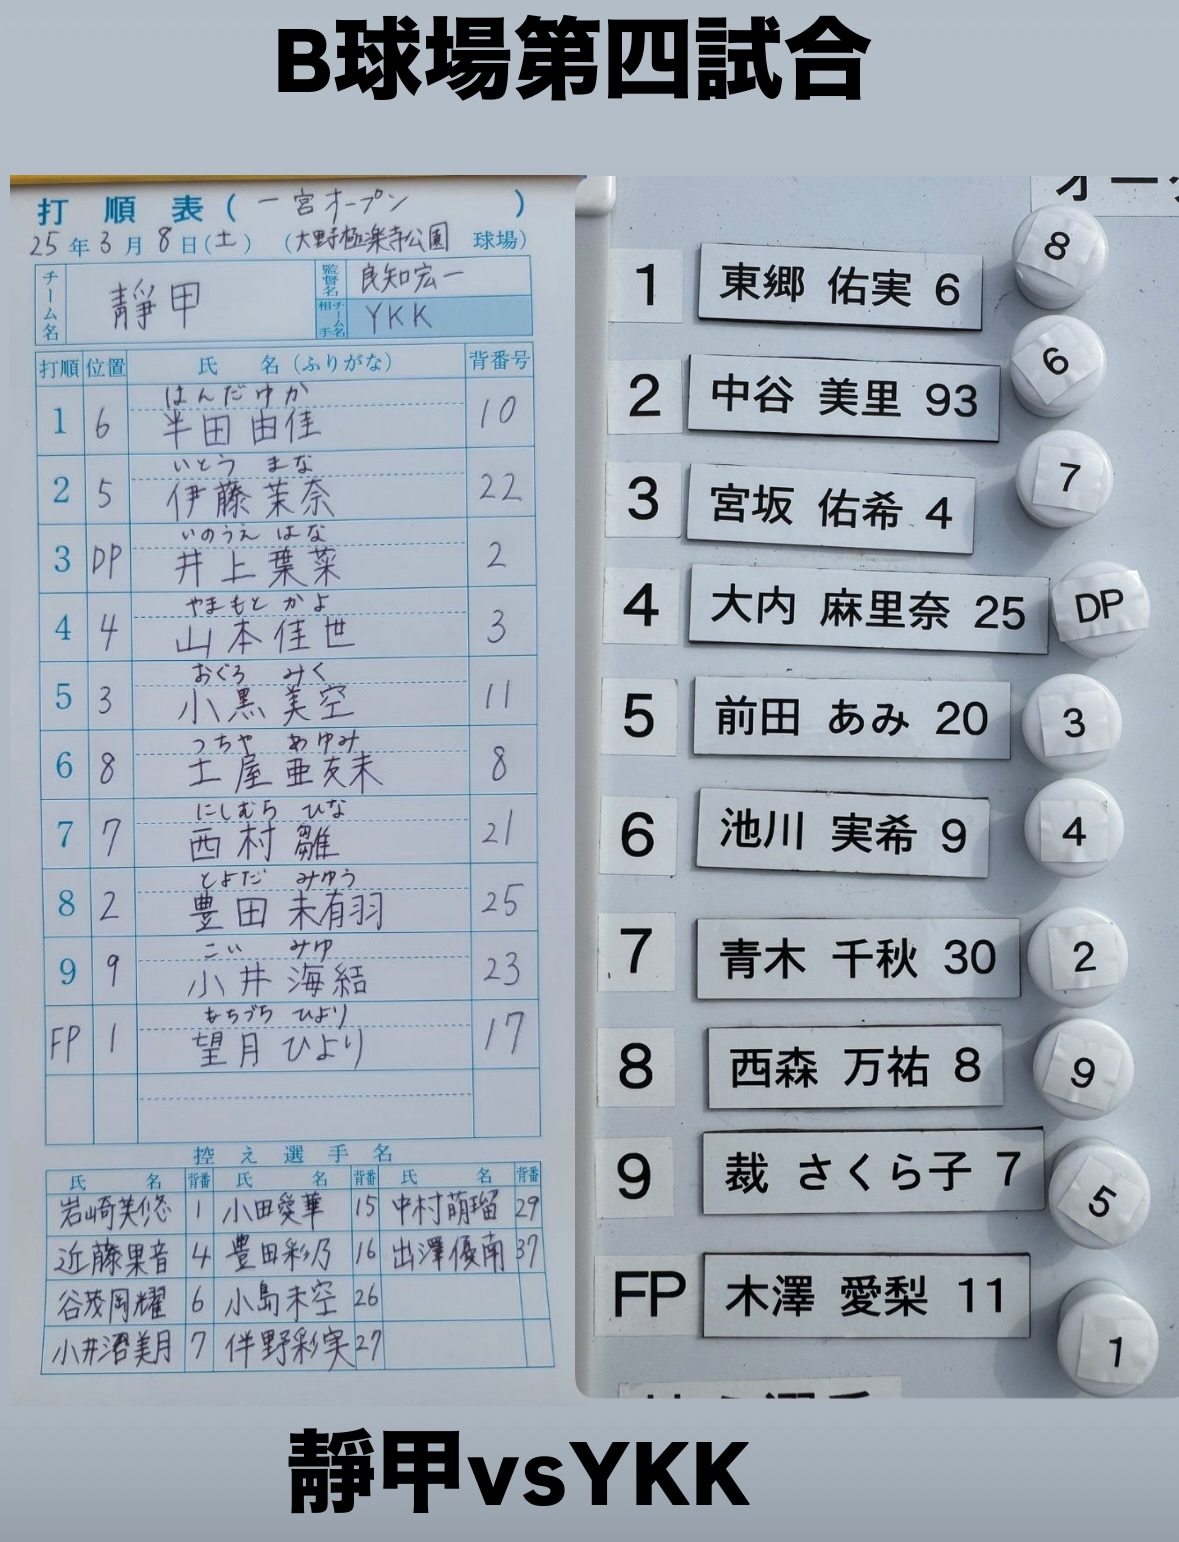 B球場第四試合
打順表(一宮オープン)
25年3月8日(土)(大野極楽寺公園 球場)
チーム名 靜甲 監督名 良知宏一
相手チーム名 YKK
打順 位置 氏名(ふりがな) 背番号
はんだゆか
1 6 半田由佳 10
いとう まな
2 5 伊藤茉奈 22
いのうえ はな
3 DP 井上葉菜 2
やまもと かよ
4 4 山本佳世 3
おぐろ みく
5 3 小黒美空 11
つちや あゆみ
6 8 土屋亜友未 8
にしむら ひな
7 7 西村雛 21
とよだ みゆう
8 2 豊田未有羽 25
こい みゆ
9 9 小井海結 23
もちづち ひより
FP 1 望月ひより 17
控え選手名
氏名 背番 氏名 背番 氏名 背番
岩崎美悠 1 小田愛華 15 中村萌瑠 29
近藤果音 4 豊田彩乃 16 出澤優南 37
谷茂岡耀 6 小島未空 26
小井沼美月 7 伴野彩実 27
1 東郷 佑実 6 8
2 中谷 美里 93 6
3 宮坂 佑希 4 7
4 大内 麻里奈 25 DP
5 前田 あみ 20 3
6 池川 実希 9 4
7 青木 千秋 30 2
8 西森 万祐 8 9
9 裁 さくら子 7 5
FP 木澤 愛梨 11 1
靜甲vsYKK